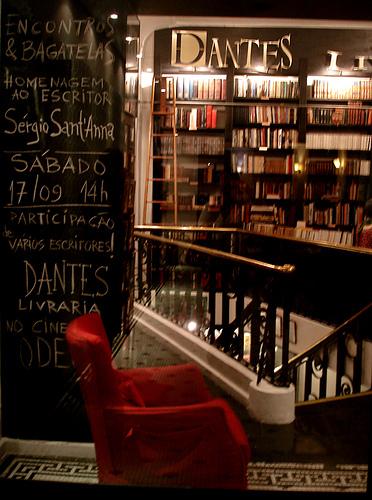 ENCONTROS
& BAGATELAS
HOMENAGEM
AO ESCRITOR
Sérgio Sant'Anna
SÁBADO
17/09 14h
PARTICIPAÇÃO
de VÁRIOS ESCRITORES!
DANTES
LIVRARIA
NO CINE
ODE
DANTES
LI